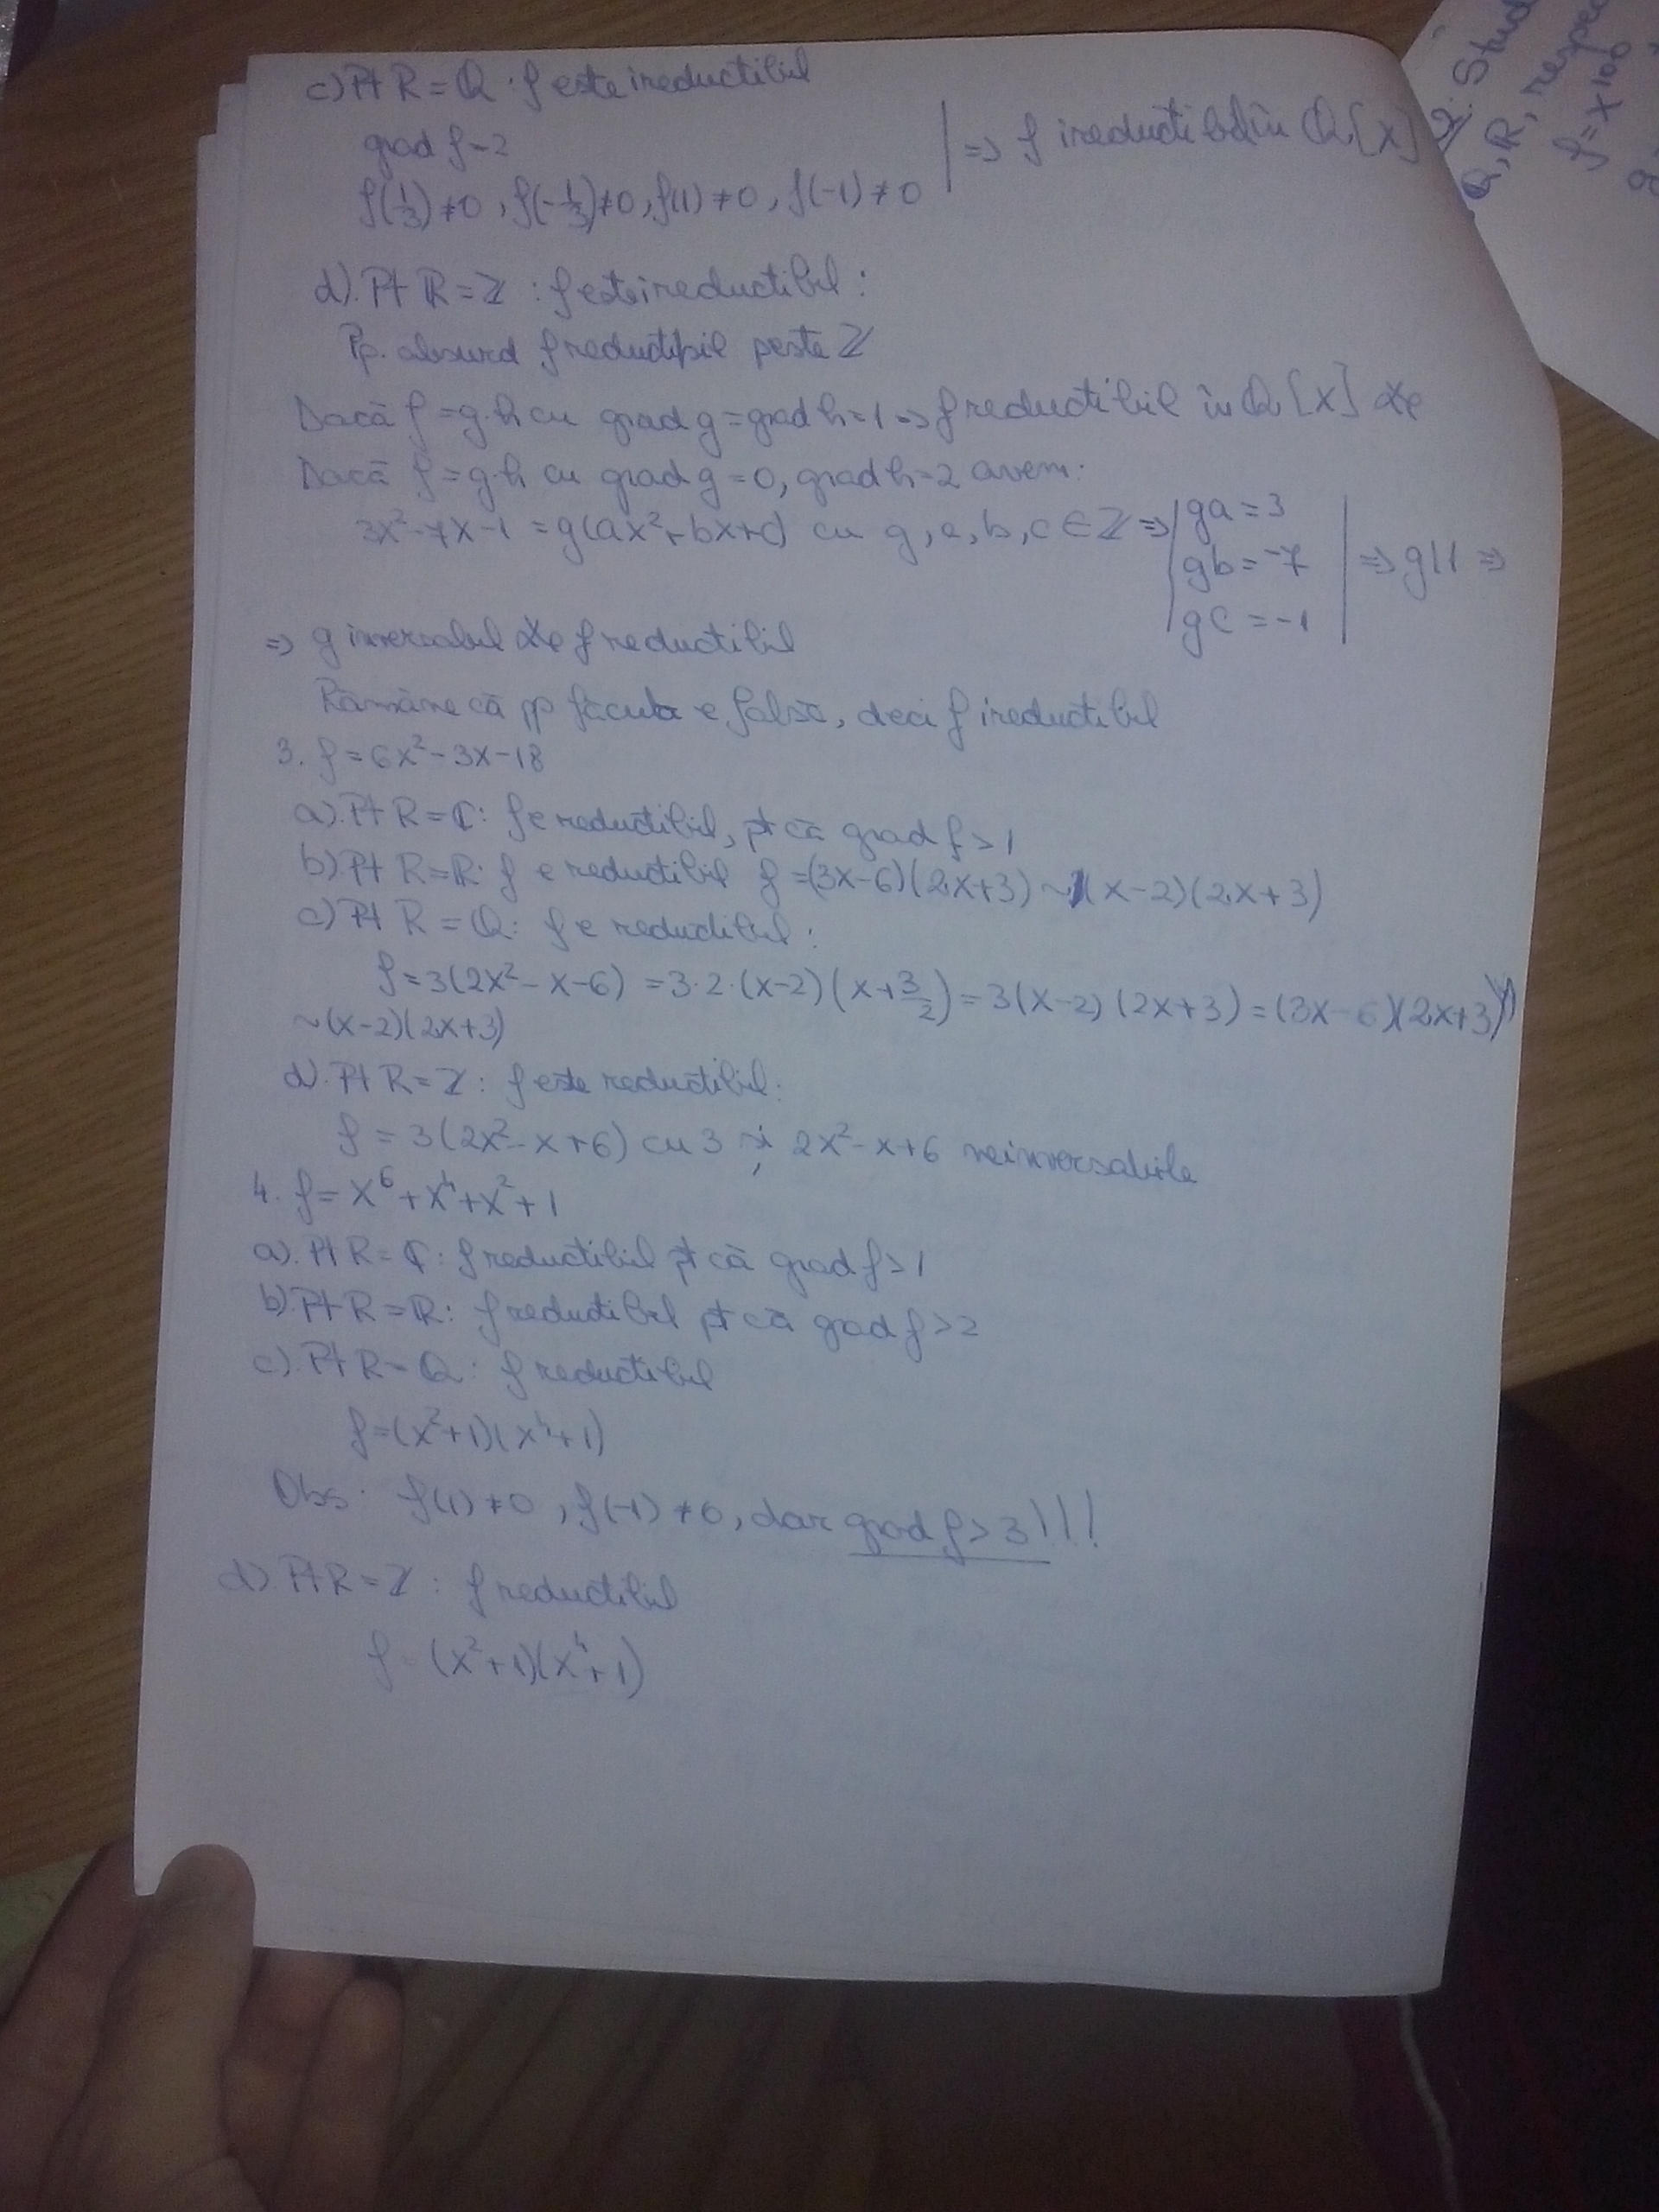 c) Pt R = Q : f este ireductibil
grad f = 2
f(1/3) ≠ 0, f(-1/3) ≠ 0, f(1) ≠ 0, f(-1) ≠ 0 | => f ireductibil în Q[X]
d). Pt R = Z : f este ireductibil :
Pp. absurd f reductibil peste Z
Dacă f = g·h cu grad g = grad h = 1 => f reductibil în Q[X]
Dacă f = g·h cu grad g = 0, grad h = 2 avem:
3x² - 7x - 1 = g(ax² + bx + c) cu g, a, b, c ∈ Z => | ga = 3
gb = -7 | => g|1 =>
gc = -1
=> g inversabil f reductibil
Rămâne că pp făcută e falsă, deci f ireductibil
3. f = 6x² - 3x - 18
a). Pt R = C: f e reductibil, pt că grad f > 1
b) Pt R = R: f e reductibil f = (3x-6)(2x+3) ~ (x-2)(2x+3)
c) Pt R = Q: f e reductibil :
f = 3(2x² - x - 6) = 3·2·(x-2)(x+3/2) = 3(x-2)(2x+3) = (3x-6)(2x+3)
~ (x-2)(2x+3)
d). Pt R = Z : f este reductibil:
f = 3(2x² - x + 6) cu 3 și 2x² - x + 6 neinversabile
4. f = x⁶ + x⁴ + x² + 1
a). Pt R = C: f reductibil pt că grad f > 1
b). Pt R = R: f reductibil pt că grad f > 2
c). Pt R = Q : f reductibil
f = (x²+1)(x⁴+1)
Obs : f(1) ≠ 0, f(-1) ≠ 0, dar grad f > 3!!!
d). Pt R = Z : f reductibil
f = (x²+1)(x⁴+1)
2. Stud
Q, R, respec
f = x¹⁰⁰